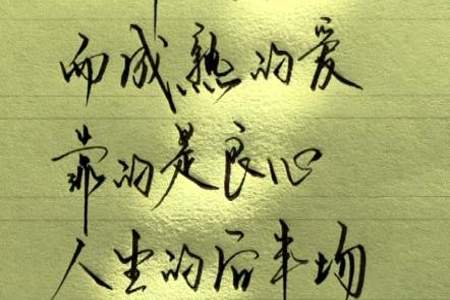 而成熟的爱
靠的是良心
人生的后半场